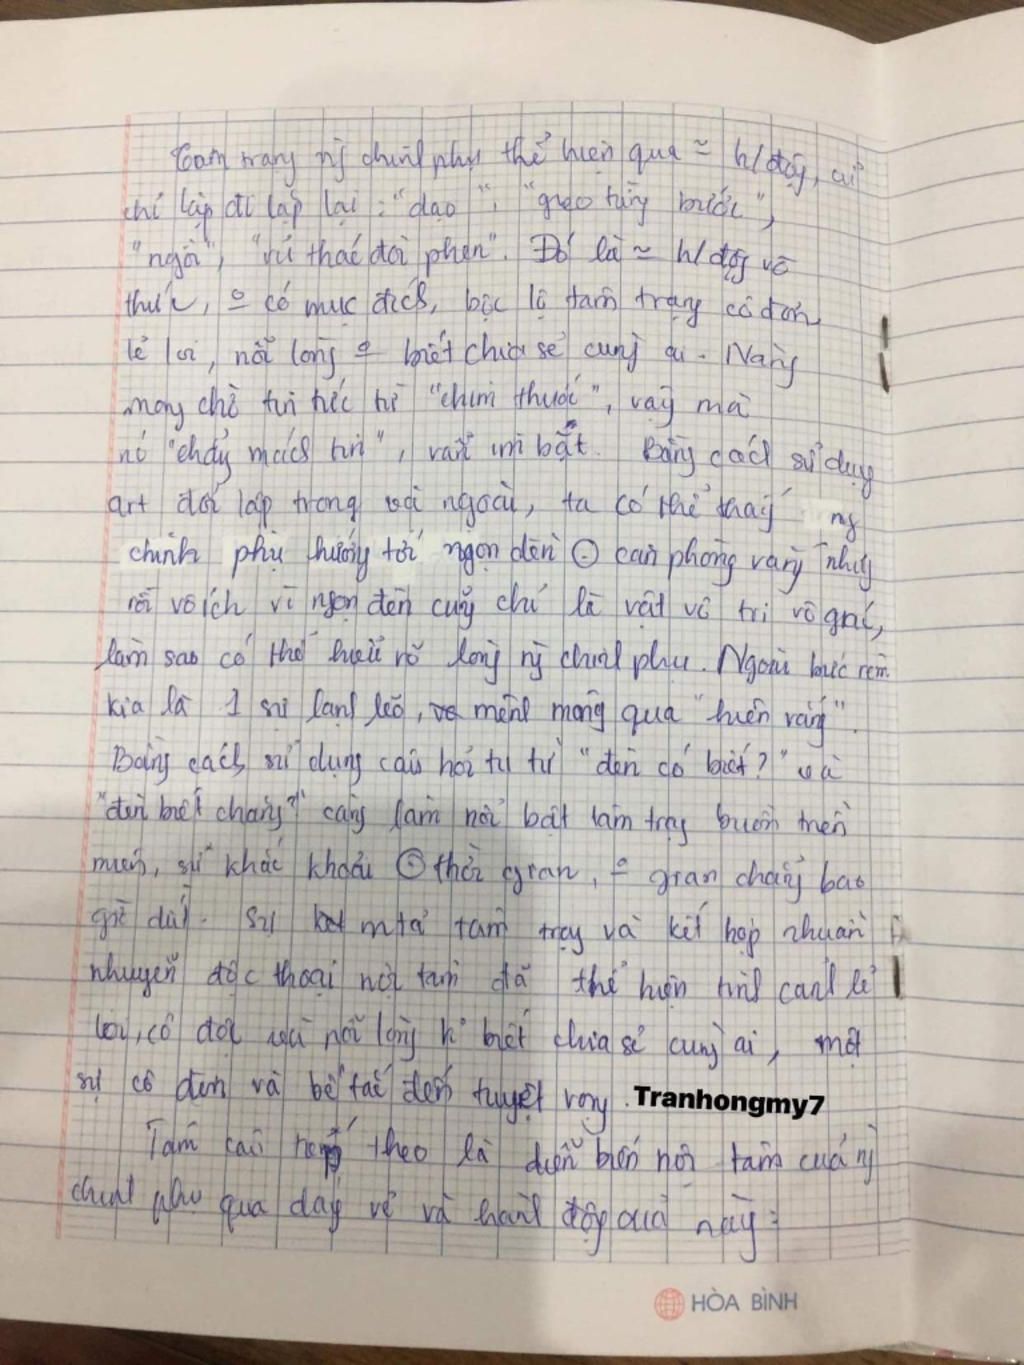 Tâm trạng ng chinh phụ thể hiện qua ~ h/động, cử
chỉ lặp đi lặp lại: "dạo", "gieo từng bước",
"ngồi", "rủ thác đòi phen". Đó là ~ h/động vô
thức, ko có mục đích, bộc lộ tâm trạng cô đơn
lẻ loi, nỗi lòng ko biết chia sẻ cùng ai. Nàng
mong chờ tin tức từ "chim thước", vậy mà
nó "chẳng mách tin", vẫn im bặt. Bằng cách sử dụng
art đối lập trong và ngoài, ta có thể thấy ng
chinh phụ hướng tới ngọn đèn căn phòng vắng nhưng
rồi vô ích vì ngọn đèn cũng chỉ là vật vô tri vô giác,
làm sao có thể hiểu rõ lòng ng chinh phụ. Ngoài bức rèm
kia là 1 sự lạnh lẽo, mênh mông qua "hiên vắng".
Bằng cách sử dụng câu hỏi tu từ "đèn có biết?" và
"đèn biết chăng?" càng làm nổi bật tâm trạng buồn triền
miên, sự khắc khoải thời gian, ko gian chẳng bao
giờ dứt. Sự m tả tâm trạng và kết hợp nhuần
nhuyễn độc thoại nội tâm đã thể hiện tình cảnh lẻ
loi, cô đơn và nỗi lòng k biết chia sẻ cùng ai, một
sự cô đơn và bế tắc đến tuyệt vọng. Tranhongmy7
Tám câu theo là diễn biến nội tâm của ng
chinh phụ qua dáng vẻ và hành động của nàng:
HÒA BÌNH